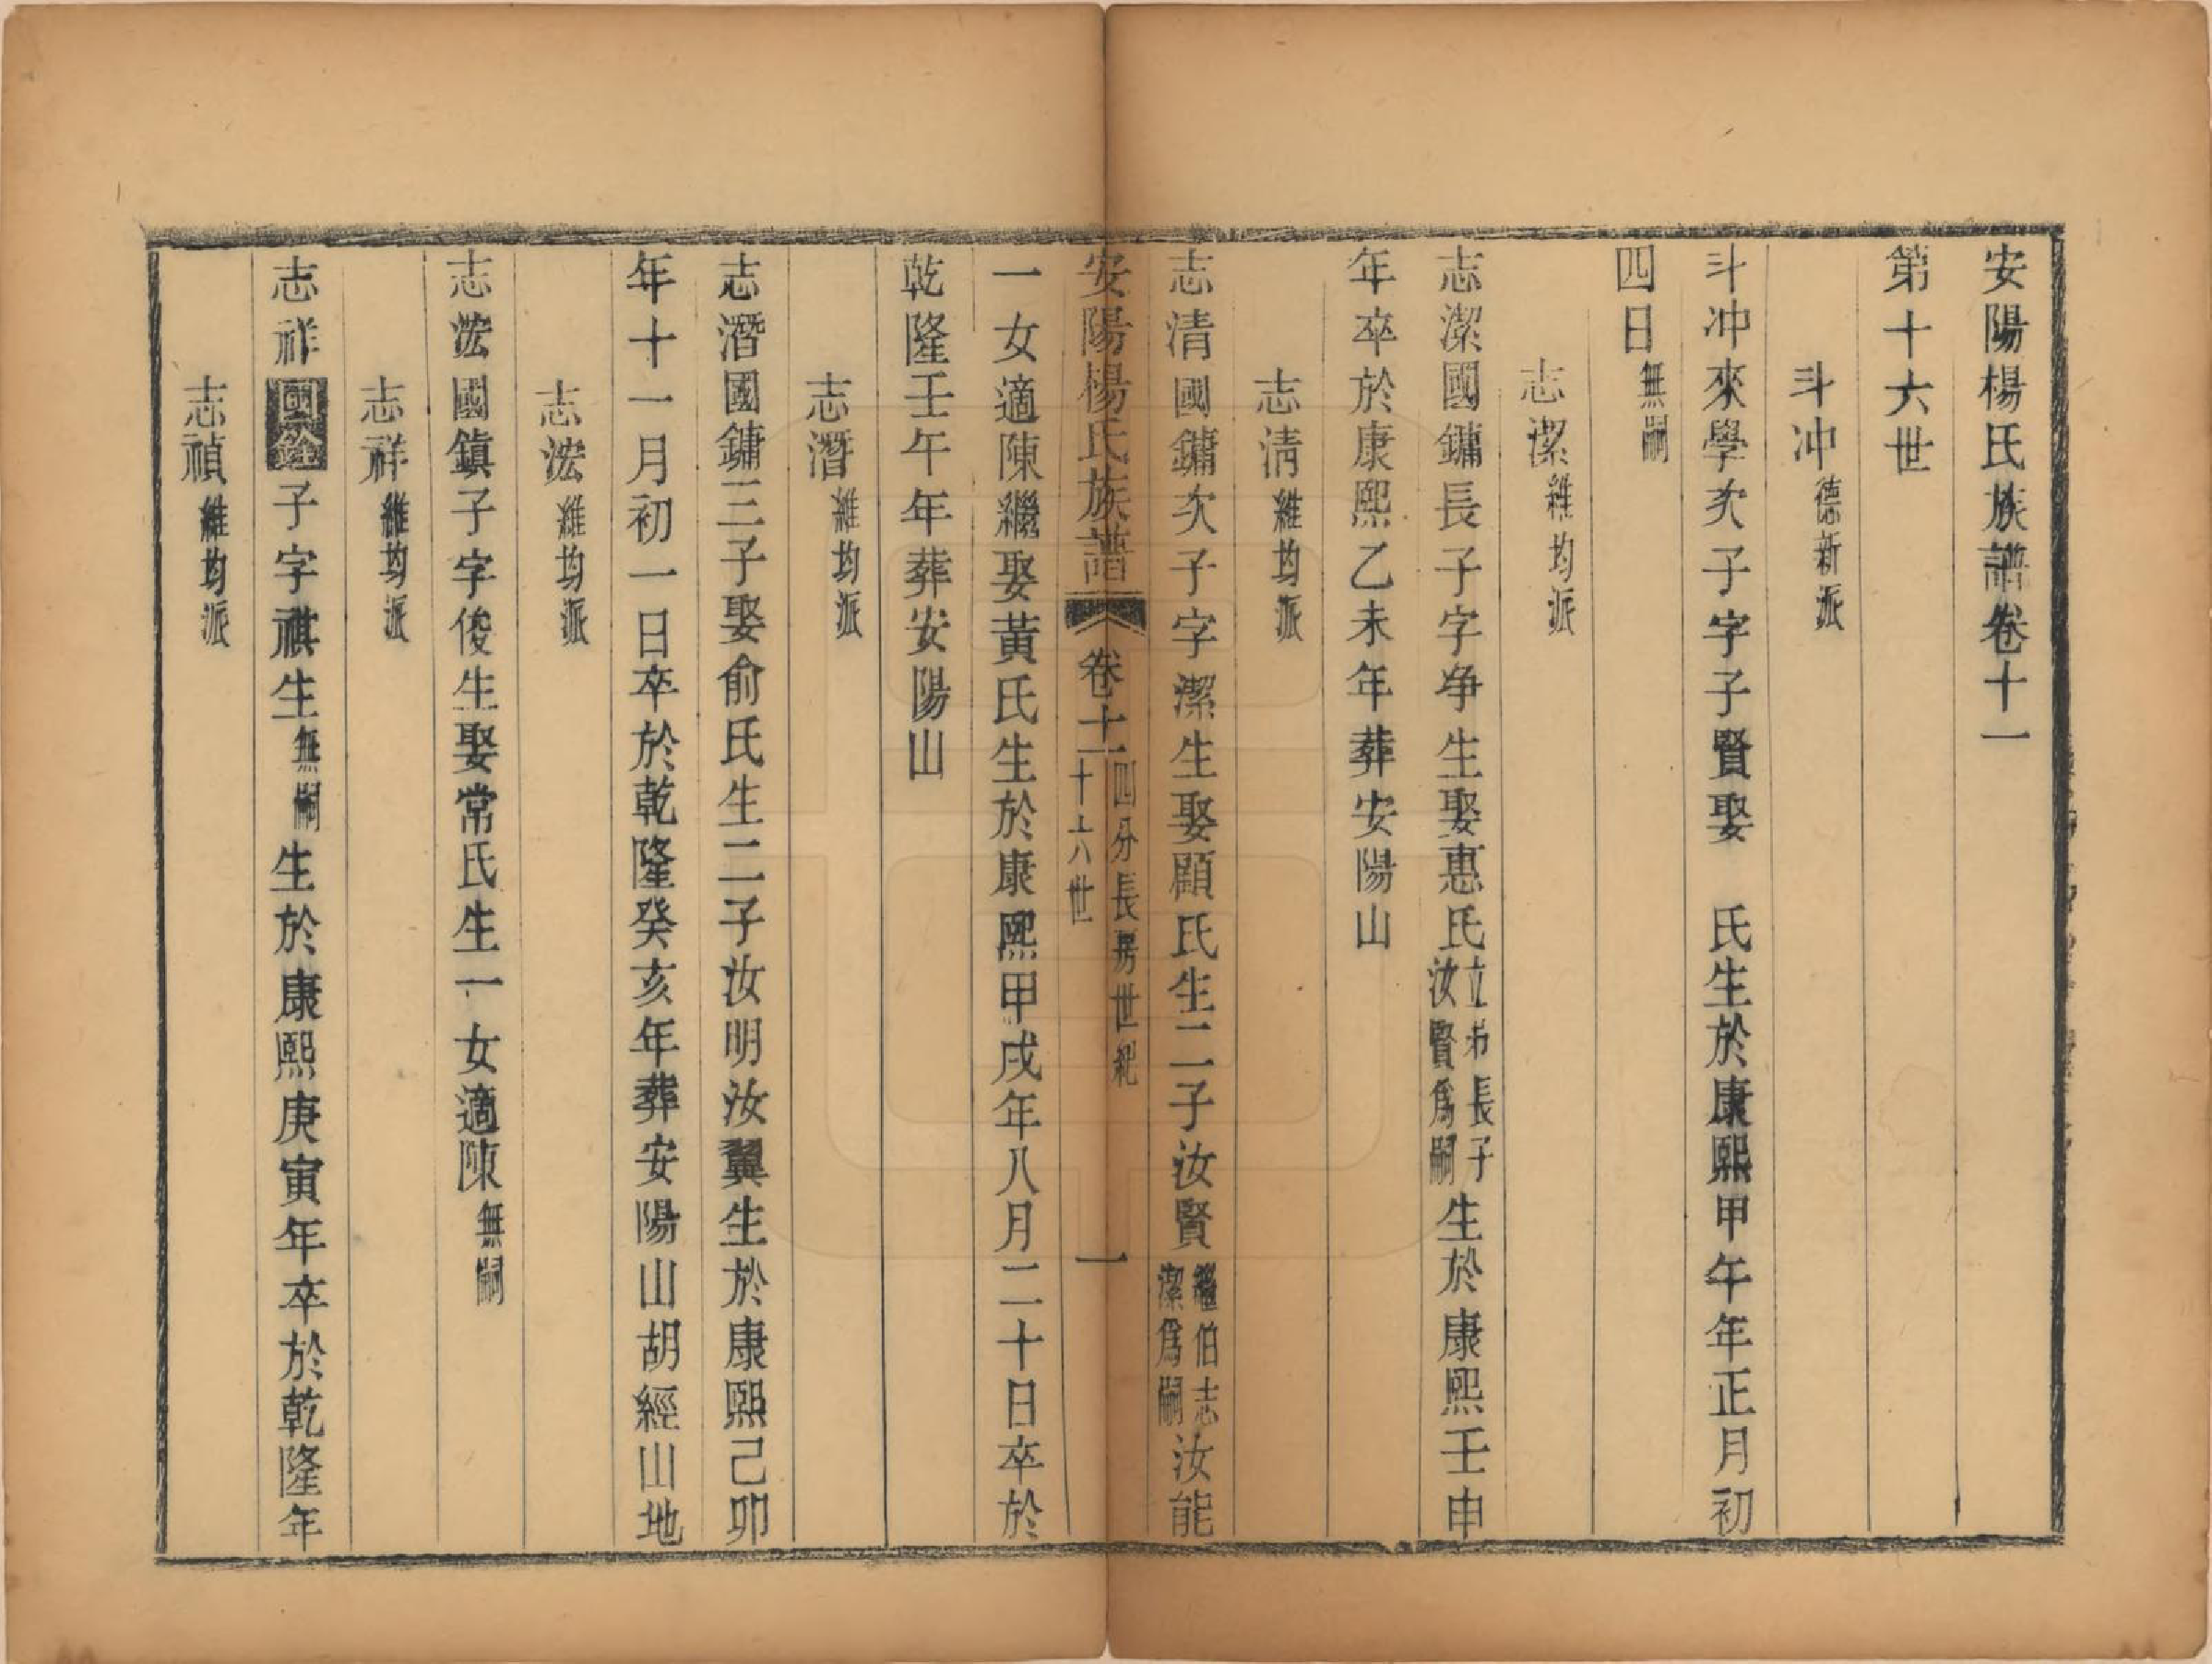 安陽楊氏族譜卷十一
第十六世
斗冲德新派
斗冲來學次子字子賢娶　氏生於康熙甲午年正月初
四日無嗣
志潔維均派
志潔國鏞長子字净生娶惠氏立弟長子汝賢爲嗣生於康熙壬申
年卒於康熙乙未年葬安陽山
志清維均派
志清國鏞次子字潔生娶顧氏生二子汝賢繼伯志潔爲嗣汝能
安陽楊氏族譜　卷十一　四分長房世紀　十六世　一
一女適陳繼娶黃氏生於康熙甲戌年八月二十日卒於
乾隆壬午年葬安陽山
志潛維均派
志潛國鏞三子娶俞氏生二子汝明汝翼生於康熙己卯
年十一月初一日卒於乾隆癸亥年葬安陽山胡經山地
志浤維均派
志浤國鎮子字俊生娶常氏生一女適陳無嗣
志祥維均派
志祥國銓子字祺生無嗣生於康熙庚寅年卒於乾隆年
志禎維均派